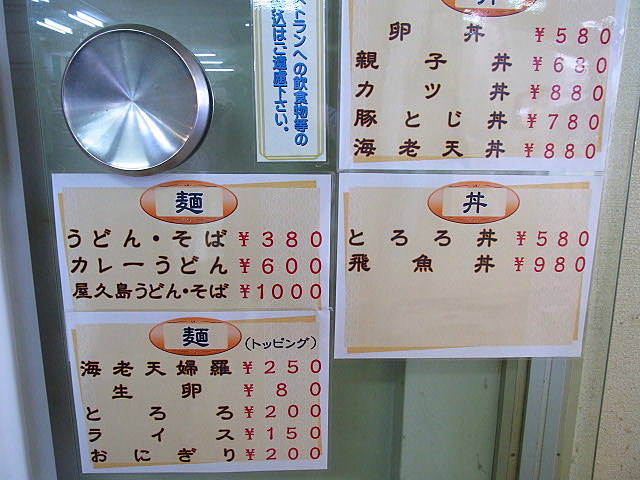 ストランへの飲食物等の
込はご遠慮下さい。
丼
卵丼 ¥580
親子丼 ¥680
カツ丼 ¥880
豚とじ丼 ¥780
海老天丼 ¥880
麺
うどん・そば ¥380
カレーうどん ¥600
屋久島うどん・そば ¥1000
丼
とろろ丼 ¥580
飛魚丼 ¥980
麺 (トッピング)
海老天婦羅 ¥250
生卵 ¥80
とろろ ¥200
ライス ¥150
おにぎり ¥200